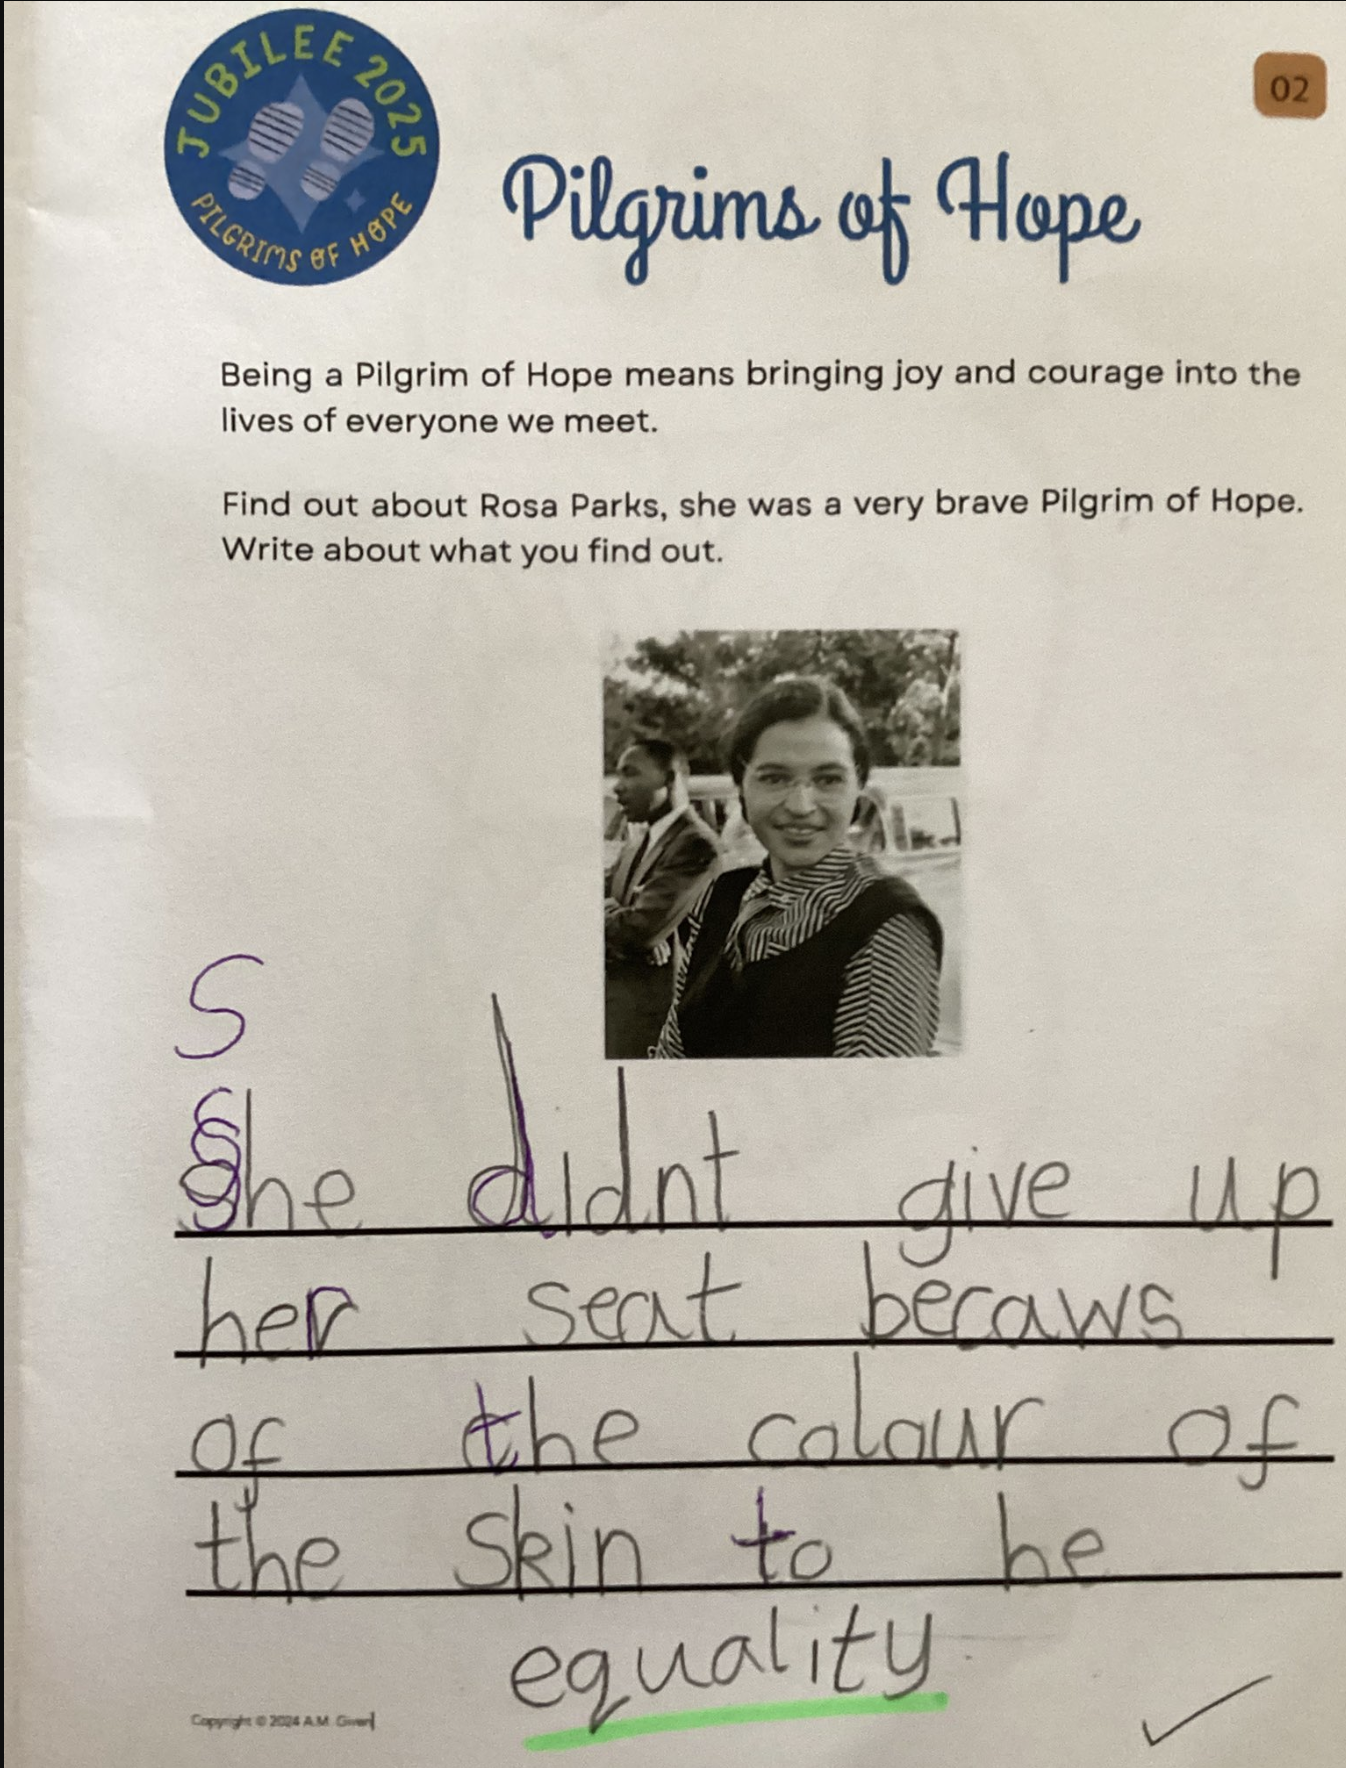 JUBILEE 2025
PILGRIMS OF HOPE
02
Pilgrims of Hope
Being a Pilgrim of Hope means bringing joy and courage into the
lives of everyone we meet.
Find out about Rosa Parks, she was a very brave Pilgrim of Hope.
Write about what you find out.
S
She didnt give up
her seat becaws
of the colour of
the skin to he
equality
Copyright © 2024 A.M. Given